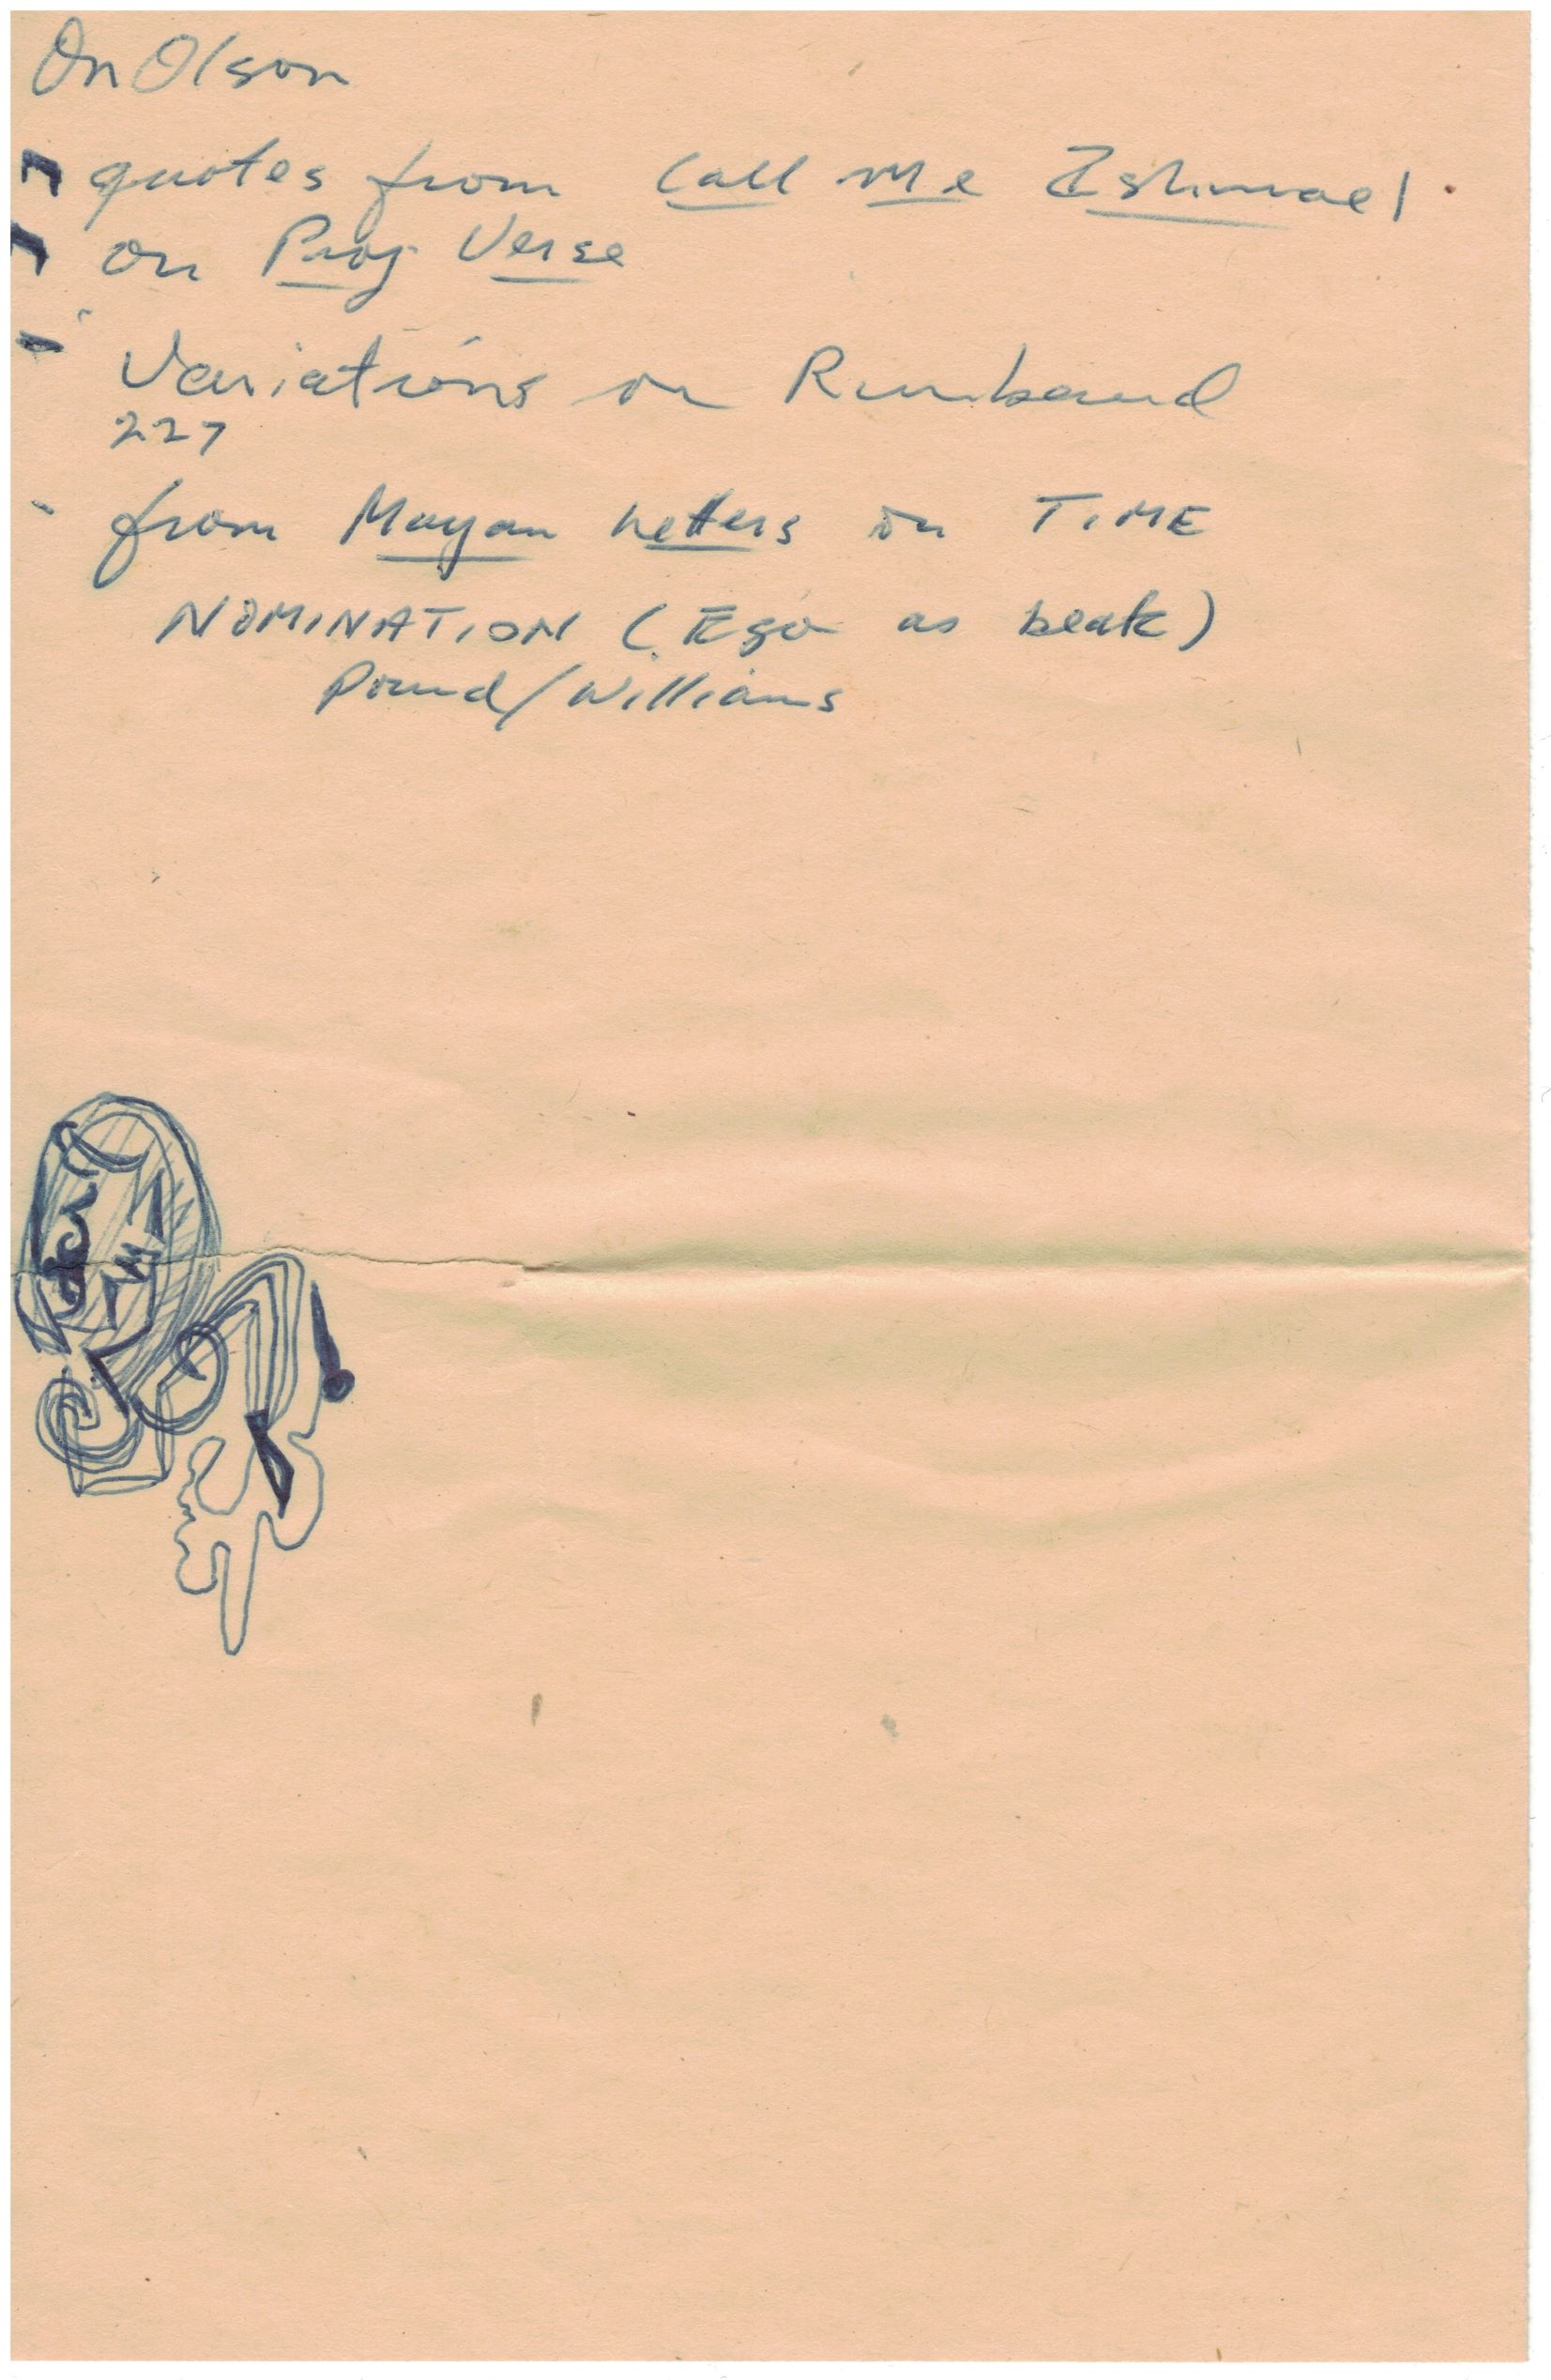 On Olson
quotes from Call Me Ishmael.
on Proj Verse
- Variations on Rimbaud
227
- from Mayan Letters on TIME
NOMINATION (Ego as beak)
Pound/Williams